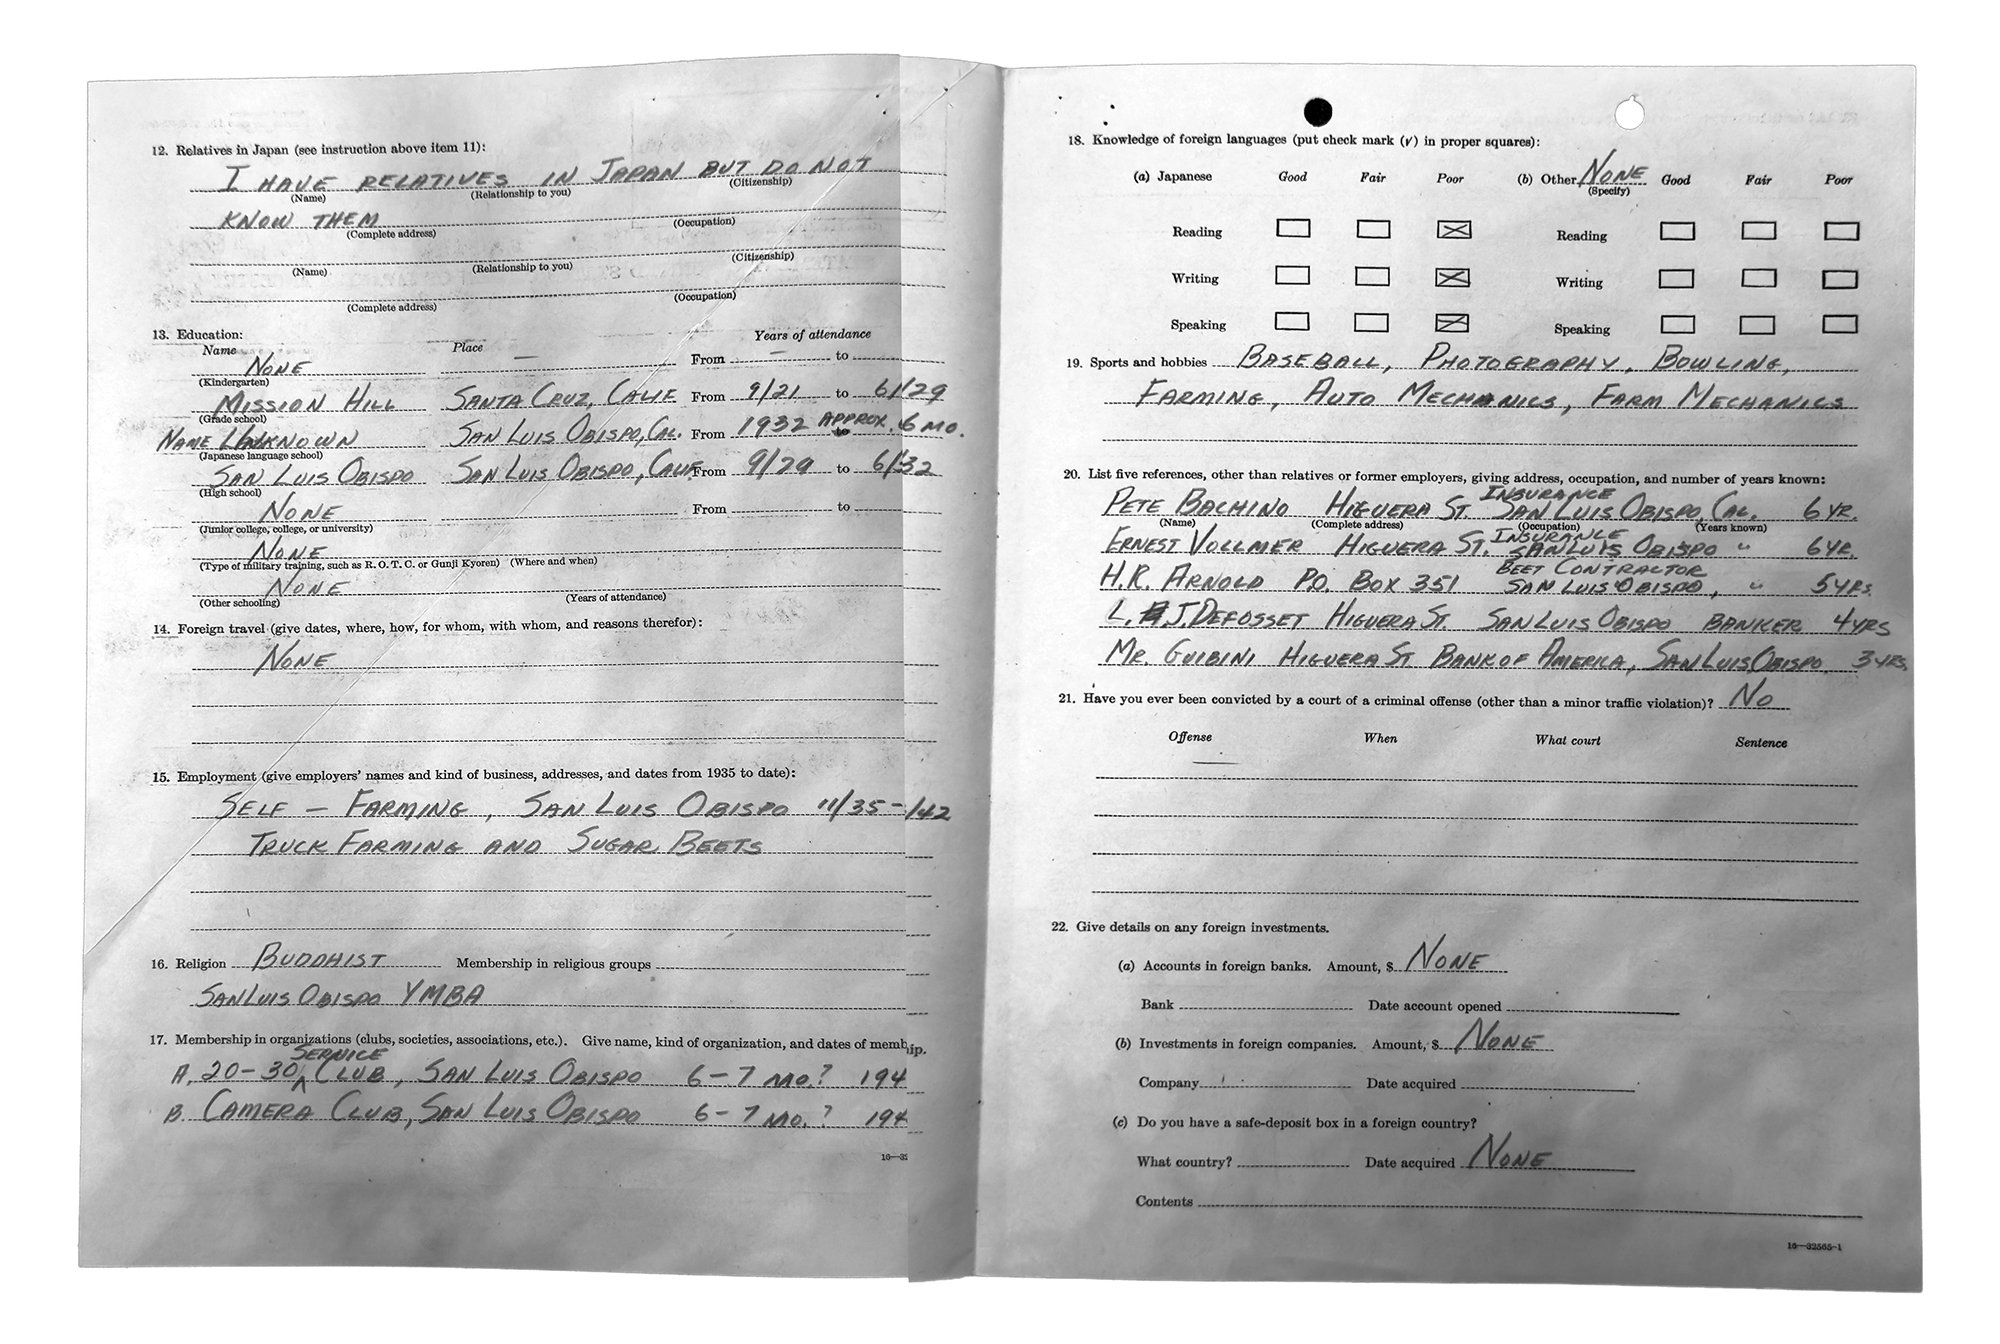 12. Relatives in Japan (see instruction above item 11):
I HAVE RELATIVES IN JAPAN BUT DO NOT
(Name) (Relationship to you) (Citizenship)
KNOW THEM
(Complete address) (Occupation)
(Name) (Relationship to you) (Citizenship)
(Complete address) (Occupation)
13. Education:
Name Place Years of attendance
NONE — From — to
(Kindergarten)
MISSION HILL SANTA CRUZ, CALIF From 9/21 to 6/29
(Grade school)
NAME UNKNOWN SAN LUIS OBISPO, CAL. From 1932 APPROX. to 6 MO.
(Japanese language school)
SAN LUIS OBISPO SAN LUIS OBISPO, CALIF. From 9/29 to 6/32
(High school)
NONE From to
(Junior college, college, or university)
NONE
(Type of military training, such as R. O. T. C. or Gunji Kyoren) (Where and when)
NONE
(Other schooling) (Years of attendance)
14. Foreign travel (give dates, where, how, for whom, with whom, and reasons therefor):
NONE
15. Employment (give employers' names and kind of business, addresses, and dates from 1935 to date):
SELF — FARMING, SAN LUIS OBISPO 11/35 - /42
TRUCK FARMING AND SUGAR BEETS
16. Religion BUDDHIST Membership in religious groups
SAN LUIS OBISPO YMBA
17. Membership in organizations (clubs, societies, associations, etc.). Give name, kind of organization, and dates of membership.
SERVICE
A. 20-30 CLUB, SAN LUIS OBISPO 6-7 MO.? 194
B. CAMERA CLUB, SAN LUIS OBISPO 6-7 MO.? 194
16—32
18. Knowledge of foreign languages (put check mark (✓) in proper squares):
(a) Japanese Good Fair Poor (b) Other NONE Good Fair Poor
(Specify)
Reading Reading
Writing Writing
Speaking Speaking
19. Sports and hobbies BASEBALL, PHOTOGRAPHY, BOWLING,
FARMING, AUTO MECHANICS, FARM MECHANICS
20. List five references, other than relatives or former employers, giving address, occupation, and number of years known:
INSURANCE
PETE BACHINO HIGUERA ST. SAN LUIS OBISPO, CAL. 6 YR.
(Name) (Complete address) (Occupation) (Years known)
INSURANCE
ERNEST VOLLMER HIGUERA ST. SAN LUIS OBISPO " 6 YR.
BEET CONTRACTOR
H.R. ARNOLD P.O. BOX 351 SAN LUIS OBISPO, " 5 YRS.
L. J. DEFOSSET HIGUERA ST. SAN LUIS OBISPO BANKER 4 YRS
MR. GUIBINI HIGUERA ST BANK OF AMERICA, SAN LUIS OBISPO 3 YRS.
21. Have you ever been convicted by a court of a criminal offense (other than a minor traffic violation)? NO
Offense When What court Sentence
22. Give details on any foreign investments.
(a) Accounts in foreign banks. Amount, $ NONE
Bank Date account opened
(b) Investments in foreign companies. Amount, $ NONE
Company Date acquired
(c) Do you have a safe-deposit box in a foreign country?
What country? Date acquired NONE
Contents
16—32565-1